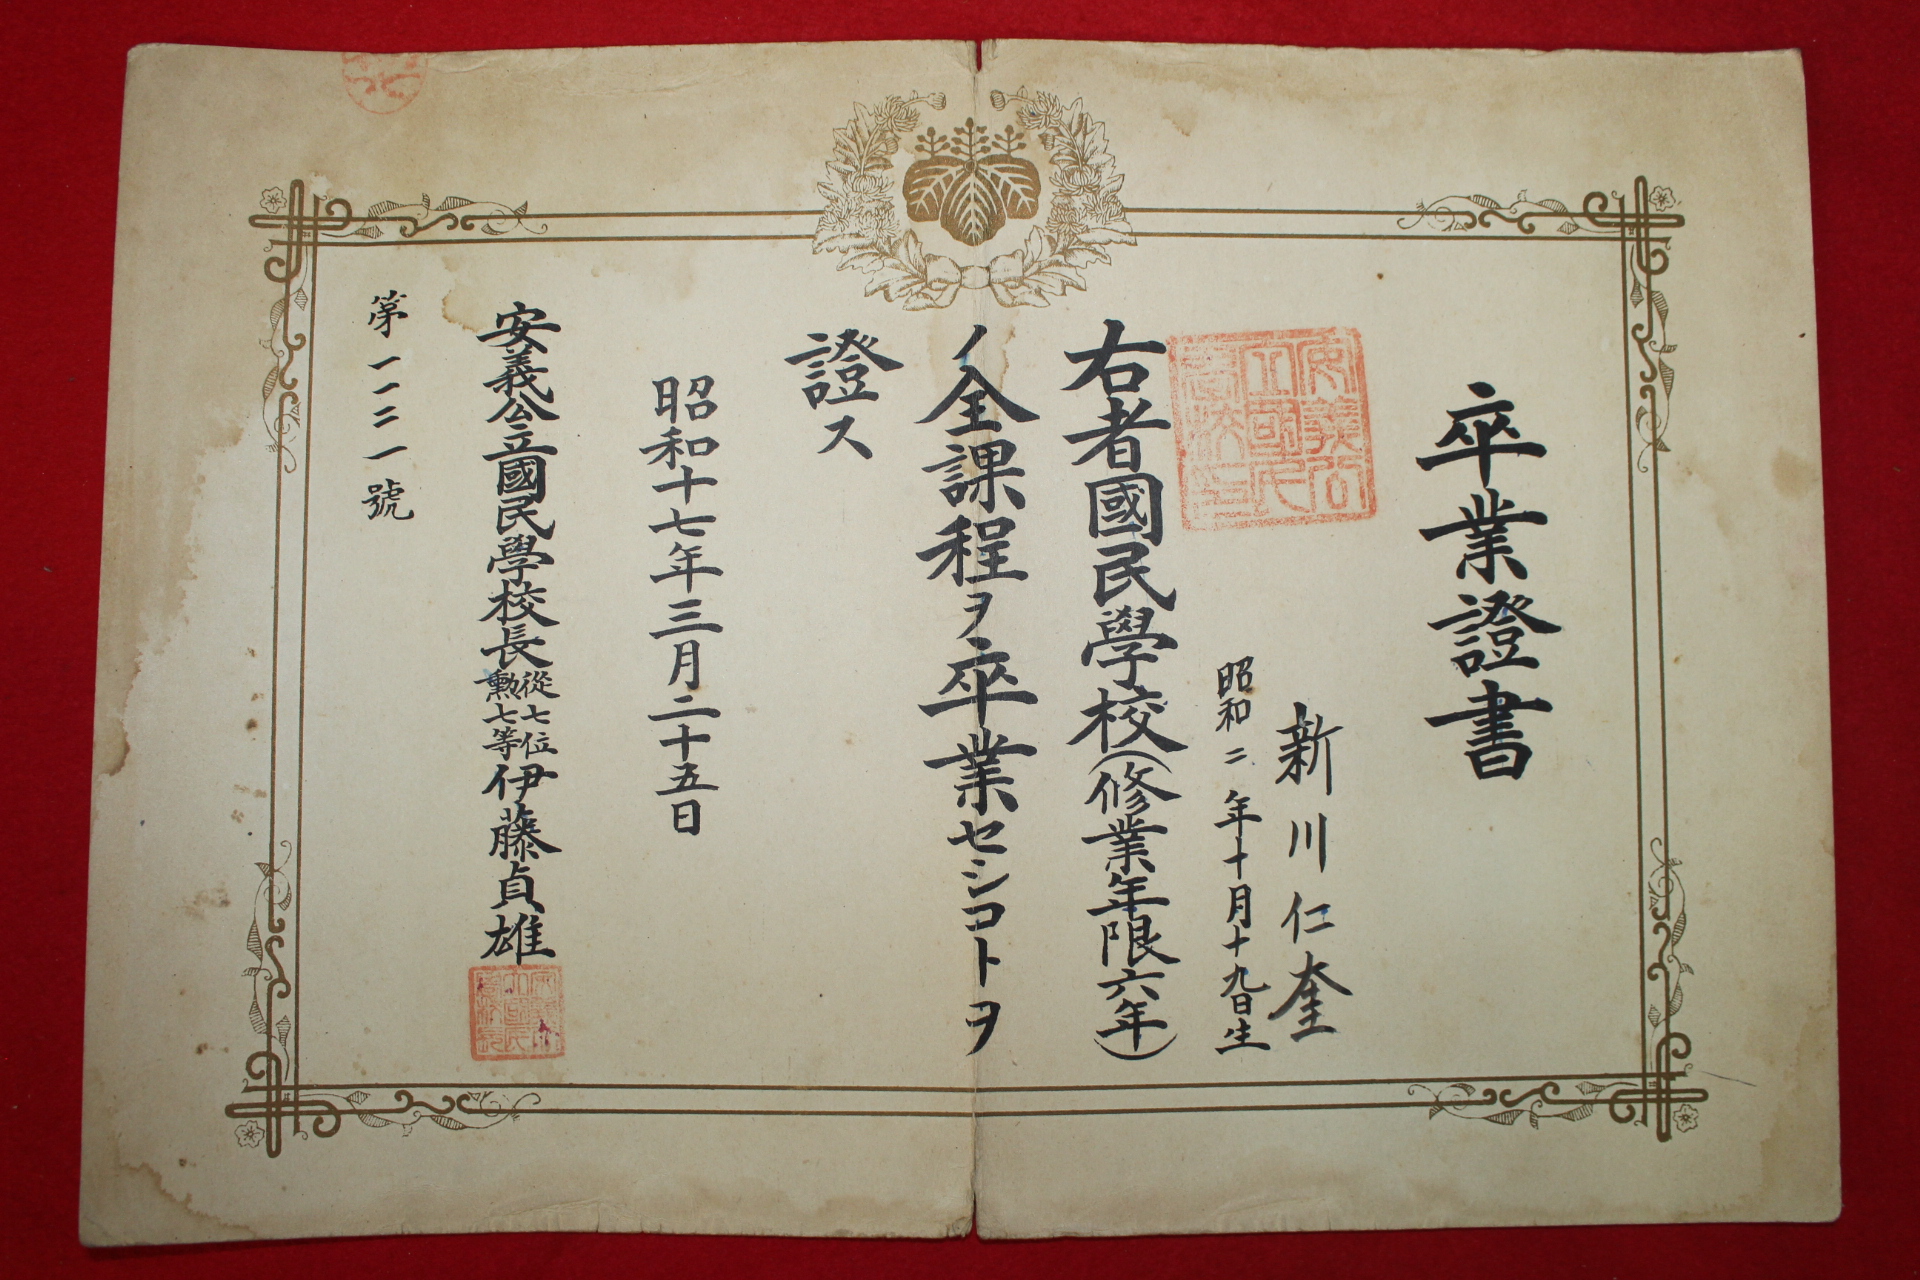 卒業證書
新川仁奎
昭和二年十月十九日生
右者國民學校(修業年限六年)
ノ全課程ヲ卒業セシコトヲ
證ス
昭和十七年三月二十五日
安義公立國民學校長從七位勳七等伊藤貞雄
第一一二一號
安義公立國民學校之印